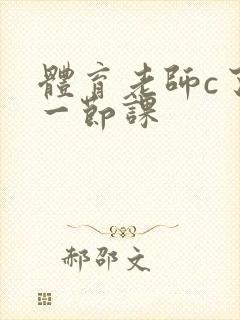 體育老師c了
一節課
郝邵文